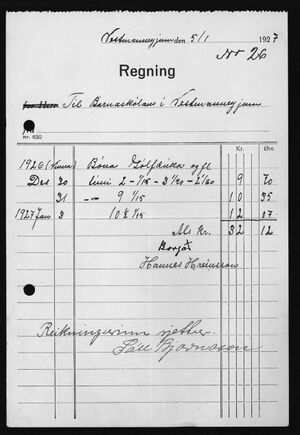 Vestmannaeyjum den 5/1 1927
Nr 26
Regning
for Herr Til Barnaskólans í Vestmannaeyjum
Nr. 630
Kr. Øre
1926 Bóna Gólfdúka og fl
Des 30 2 - 1/15 - 3 1/20 - 2 1/60 9 70
31 -- 9 1/15 10 35
1927 Jan 3 10 ½ 1/15 12 07
Als kr. 32 12
Borgað
Hannes Hreinsson
Reikningurinn rjettur
Páll Bjarnason